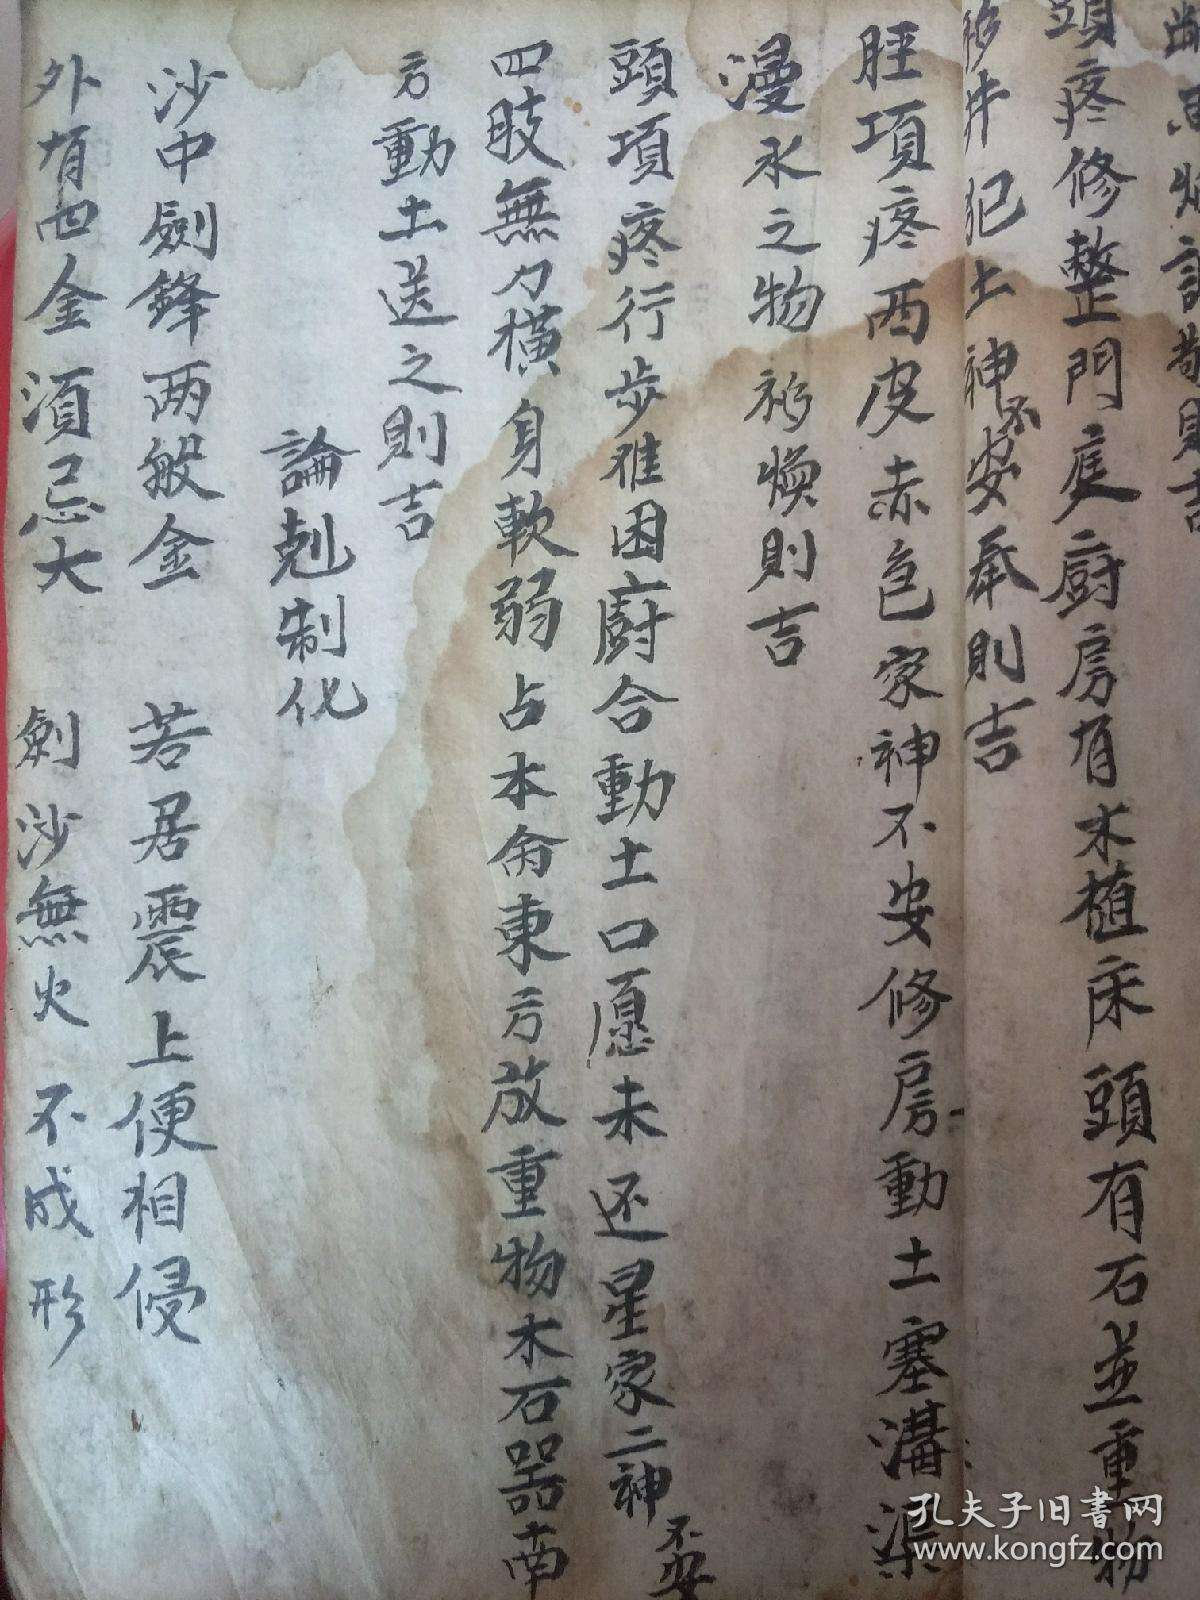 則吉
頭疼修整門庭廚房有木植床頭有石並重物
移井犯土神不安奉則吉
脛項疼两皮赤色家神不安修房動土塞溝渠
漫水之物移煥則吉
頭項疼行步难困廚合動土口愿未还星家二神不安
四肢無力橫身軟弱占本命東方放重物木石器南
方動土送之則吉
論剋制化
沙中劍鋒两般金 若居震上便相侵
外有四金須忌火 劍沙無火不成形
孔夫子旧书网
www.kongfz.com